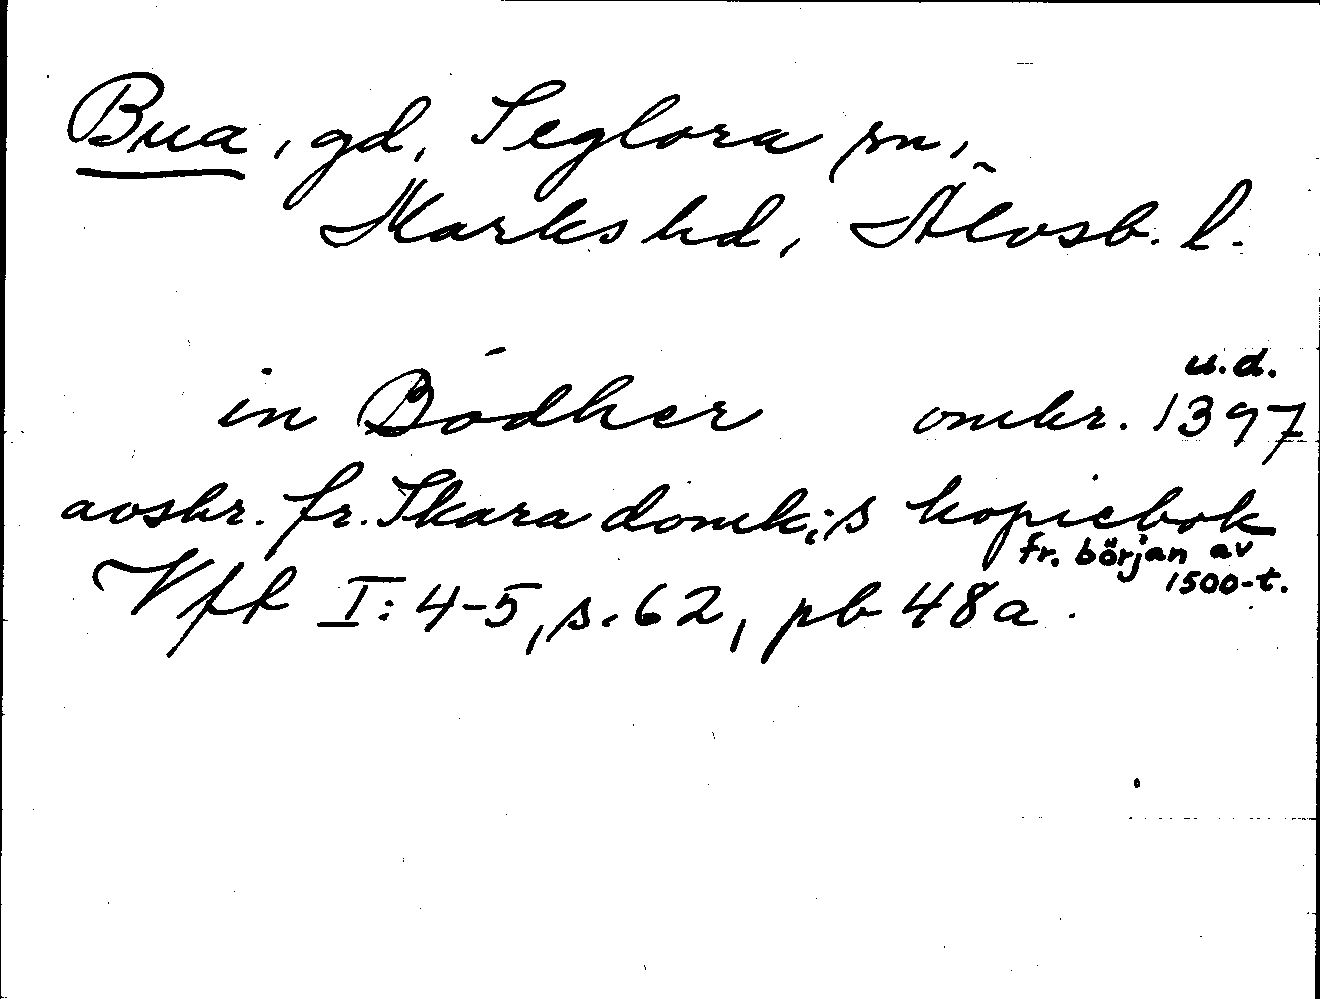 Bua, gd, Seglora sn,
Marks hd, Älvsb. l.
u.d.
in Bodher omkr. 1397
avskr. fr. Skara domk:s kopiebok
fr. början av
1500-t.
Vff I: 4-5, s. 62, pb 48a.